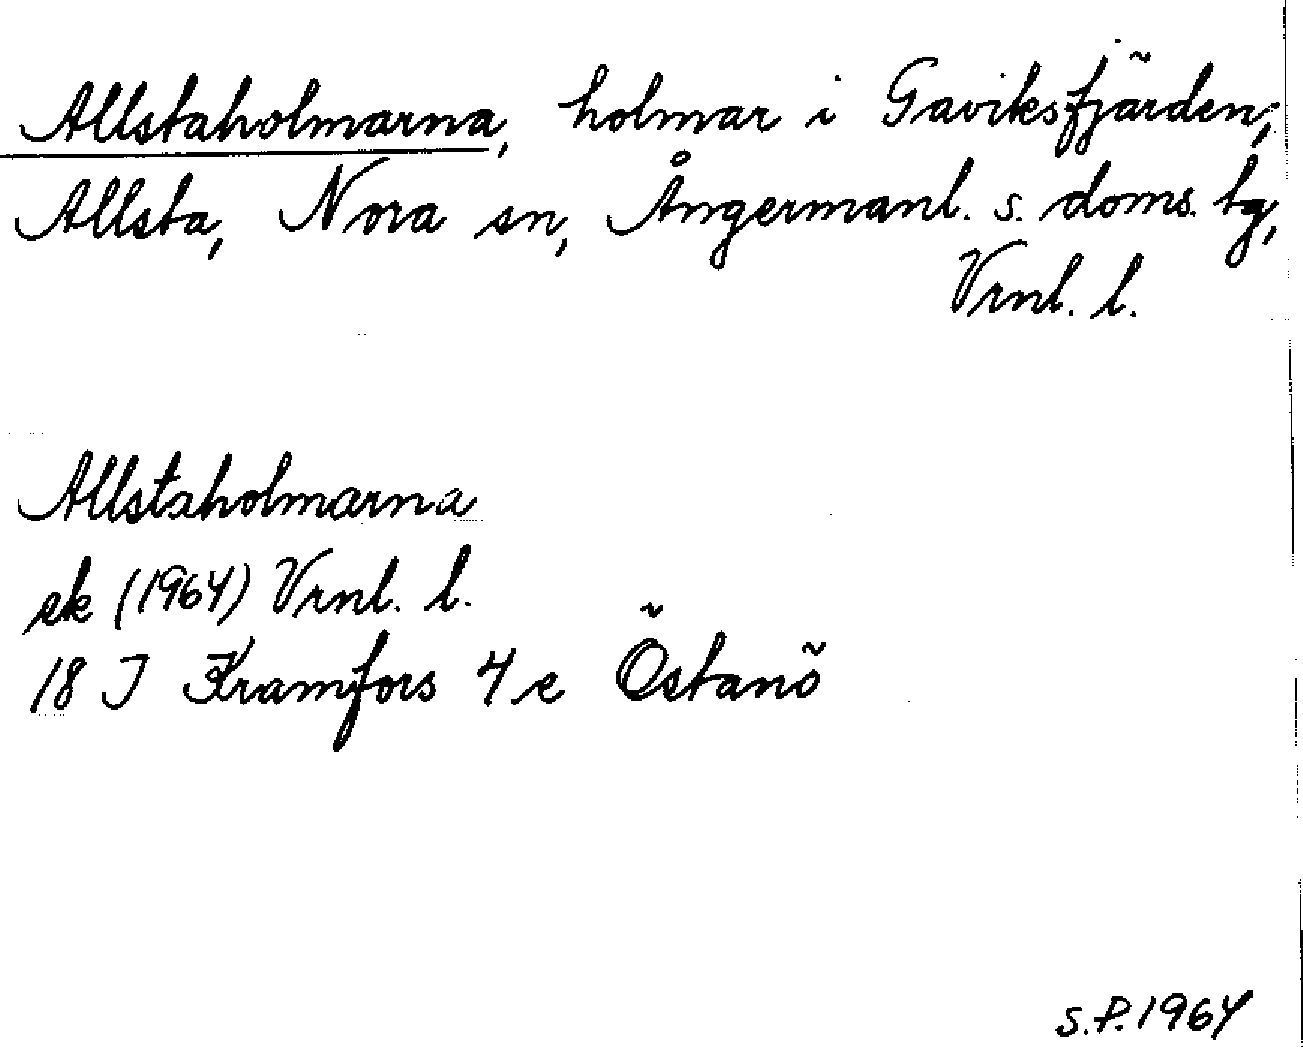 Allstaholmarna, holmar i Gaviksfjärden,
Allsta, Nora sn, Ångermanl. s. doms. tg,
Vrnl. l.
Allstaholmarna
ek (1964) Vrnl. l.
18 J Kramfors 4 e Östanö
S.P. 1964